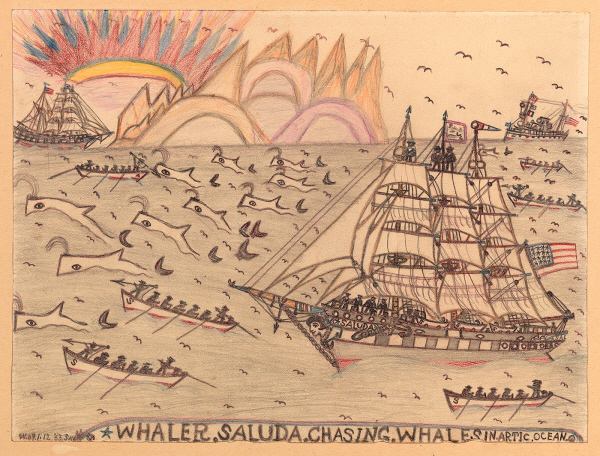 SALUDA
S
S
S
★WHALER.SALUDA.CHASING.WHALES IN.ARTIC.OCEAN.